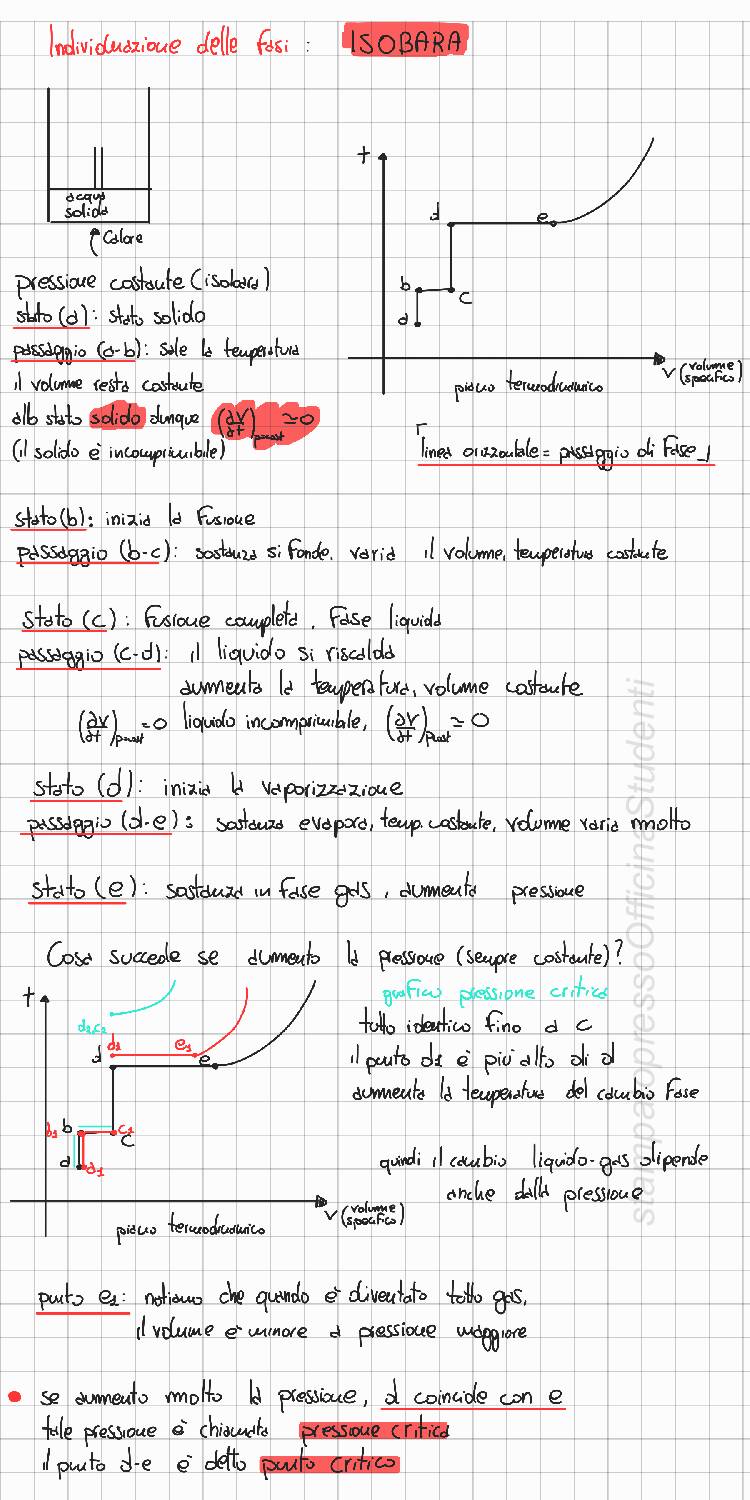 Individuazione delle fasi : ISOBARA
acqua
solida
Calore
t
d
e
b
c
a
v (volume specifico)
piano termodinamico
pressione costante (isobara)
stato (a): stato solido
passaggio (a-b): sale la temperatura
il volume resta costante
allo stato solido dunque (∂V/∂t)pcost ≃0
(il solido è incomprimibile)
linea orizzontale = passaggio di fase
stato (b): inizia la fusione
passaggio (b-c): sostanza si fonde. varia il volume, temperatura costante
stato (c): fusione completa. Fase liquida
passaggio (c-d): il liquido si riscalda
aumenta la temperatura, volume costante
(∂V/∂t)pcost ≃0 liquido incomprimibile, (∂V/∂t)pcost ≃ 0
stato (d): inizia la vaporizzazione
passaggio (d-e): sostanza evapora, temp. costante, volume varia molto
stato (e): sostanza in fase gas, aumenta pressione
Cosa succede se aumento la pressione (sempre costante)?
grafico pressione critica
t
d2,e2
d1
e1
d
e
b1
b
c1
c
a
a1
v (volume specifico)
piano termodinamico
tutto identico fino a c
il punto d1 è più alto di d
aumenta la temperatura del cambio fase
quindi il cambio liquido-gas dipende
anche dalla pressione
punto e1: notiamo che quando è diventato tutto gas,
il volume è minore a pressione maggiore
se aumento molto la pressione, d coincide con e
tale pressione è chiamata pressione critica
il punto d-e è detto punto critico
stampatopressoOfficinaStudenti